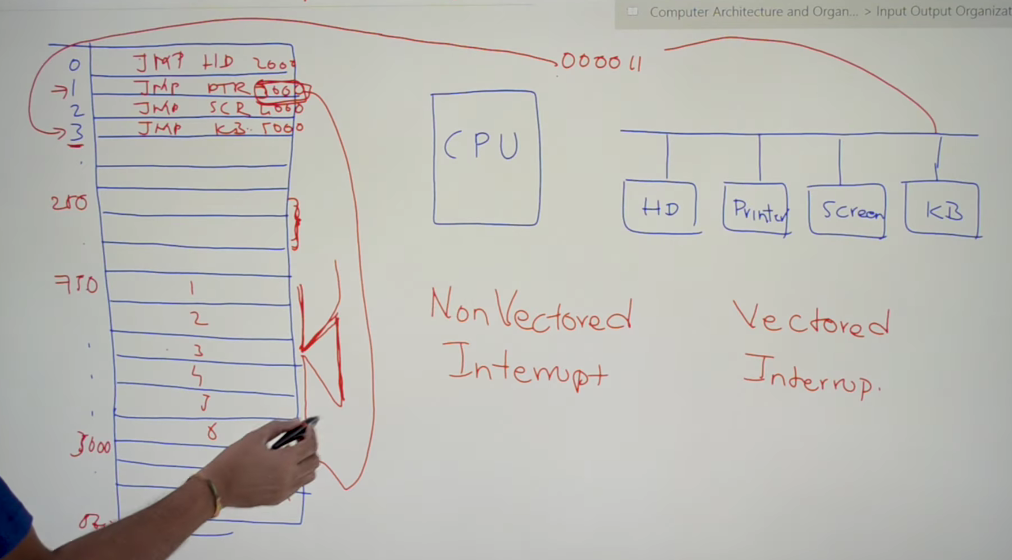 Computer Architecture and Organ... > Input Output Organizat
000011
0 JMP HD 2000
1 JMP PTR 3000
2 JMP SCR
3 JMP KB 5000
250
750
1
2
3
4
5
3000
CPU
HD
Printer
Screen
KB
NonVectored
Interrupt
Vectored
Interrup.